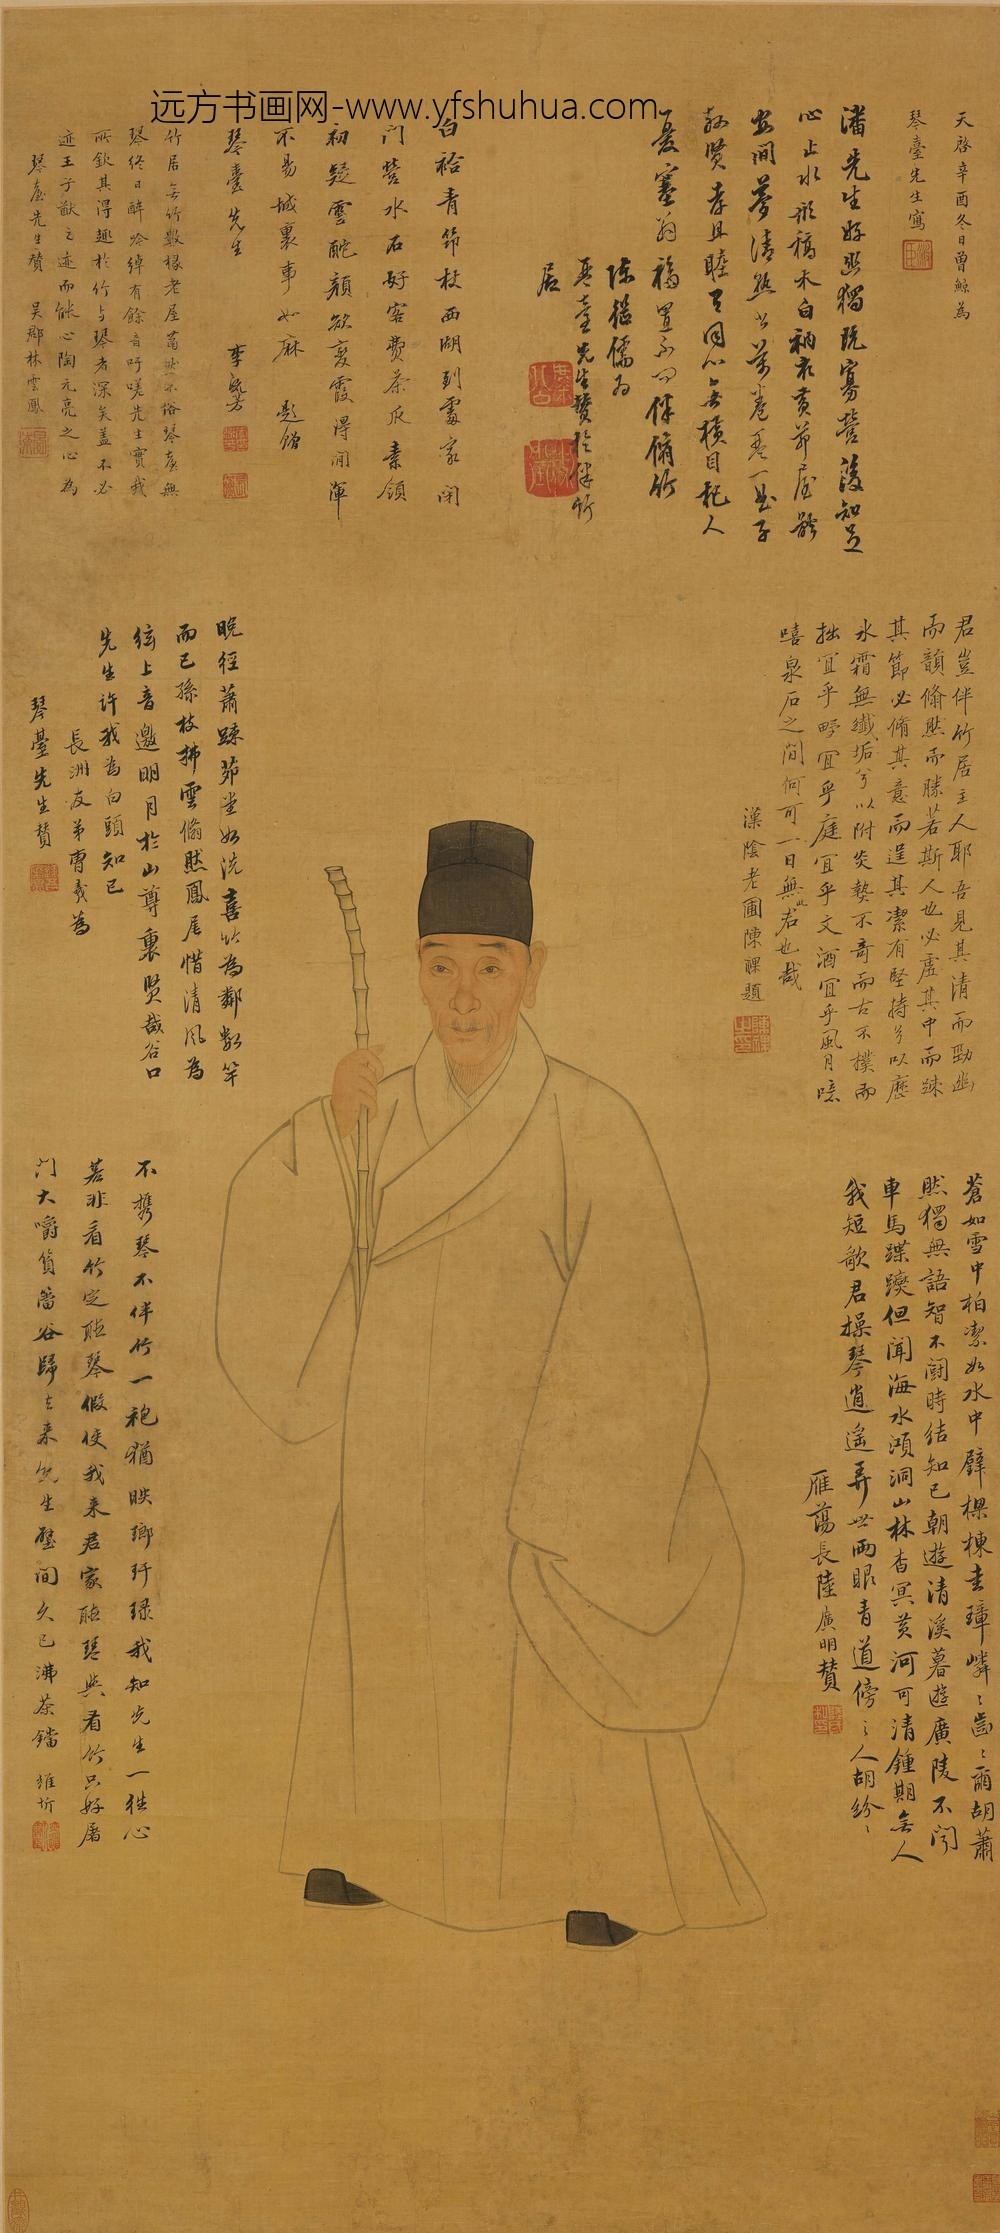 远方书画网-www.yfshuhua.com
天啓辛酉冬日曾鯨為
琴臺先生寫
潘先生好幽獨既寡營復知足
心止水形槁木白衲衣黄茆屋
安閒夢清
敦賢孝且睦
陳繼儒為
先生贊於伴竹
居
白袷青筇杖西湖到處家閉
門營水石好客費茶瓜素領
初疑雲酡顏欲變霞得閒渾
不易城裏事如麻 題贈
琴臺先生
李
竹居無竹數椽老屋蕭然不俗琴臺無
琴終日醉吟綽有餘音吁嗟先生實我
所欽其得趣於竹與琴者深矣蓋不必
迹王子猷之迹而能心陶元亮之心為
琴臺先生贊 吳郡林雲鳳
君豈伴竹居主人耶吾見其清而勁幽
而韻翛然而勝若斯人也必虛其中而疎
其節必脩其意而逞其潔有堅持兮以歷
冰霜無纖垢兮以附炎熱不奇而古不樸而
拙宜乎野宜乎庭宜乎文酒宜乎風月噫
嘻泉石之間何可一日無此君也哉
漢陰老圃陳祼題
晚徑蕭疎茆堂如洗喜竹為鄰數竿
而已孫枝拂雲翛然鳳尾惜清風為
絃上音邀明月於山尊裏賢哉谷口
先生許我為白頭知己
長洲友弟曹羲為
琴臺先生贊
蒼如雪中柏潔如水中璧樑棟圭璋嶙嶙齒齒爾胡蕭
然獨無語智不鬭時結知己朝遊清溪暮遊廣陵不聞
車馬蹀躞但聞海水澒洞山林杳冥黄河可清鍾期無人
我短歌君操琴逍遙弄世兩眼青道傍之人胡紛紛
雁蕩長陸廣明贊
不攜琴不伴竹一袍猶映瑯玕琭我知先生一往心
若非看竹定聽琴假使我來君家聽琴與看竹只好屠
門大嚼篔簹谷歸去來先生壁間久已沸茶鐺 維圻